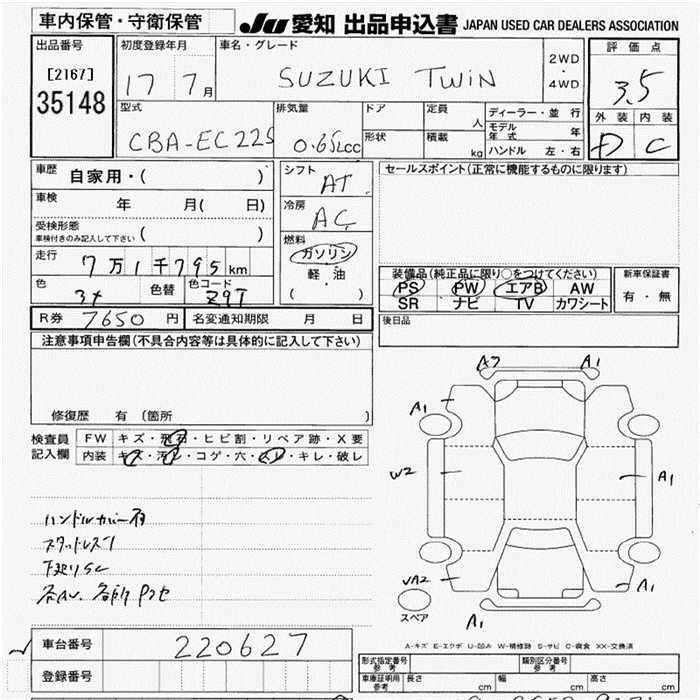 車内保管・守衛保管 JU 愛知 出品申込書 JAPAN USED CAR DEALERS ASSOCIATION
出品番号 初度登録年月 車名・グレード 評価点
[2167] 17 7月 SUZUKI TWIN 2WD・4WD 3.5
35148 外装 内装
型式 排気量 ドア 定員 人 ディーラー・並行
CBA-EC22S 0.65Lcc 形状 積載 kg モデル年式 年 D C
ハンドル 左・右
車歴 自家用・( ) シフト AT セールスポイント(正常に機能するものに限ります)
車検 年 月( 日) 冷房 AC
受検形態
車検付きのみ記入して下さい ( ) 燃料
走行 7万1千795km ガソリン 装備品(純正品に限り○をつけてください) 新車保証書
色 色替 色コード Z9T 軽・油 PS PW エアB AW 有・無
( ) SR ナビ TV カワシート
R券 7650円 名変通知期限 月 日 後日品
注意事項申告欄(不具合内容等は具体的に記入して下さい)
修復歴 有 (箇所 )
検査員 FW キズ・飛石・ヒビ割・リペア跡・X要
記入欄 内装 キズ・汚レ・コゲ・穴・スレ・キレ・破レ
A1
A1
W2 A1
ハンドルカバー有
スタッドレス
A1
スペア A1
A-キズ E-エクボ U-凹み W-補修跡 S-サビ C-腐食 XX-交換済
車台番号 220627
登録番号
形式指定番号 参考 類別区分番号 参考
車庫証明用 参考 長さ cm 幅 cm 高さ cm